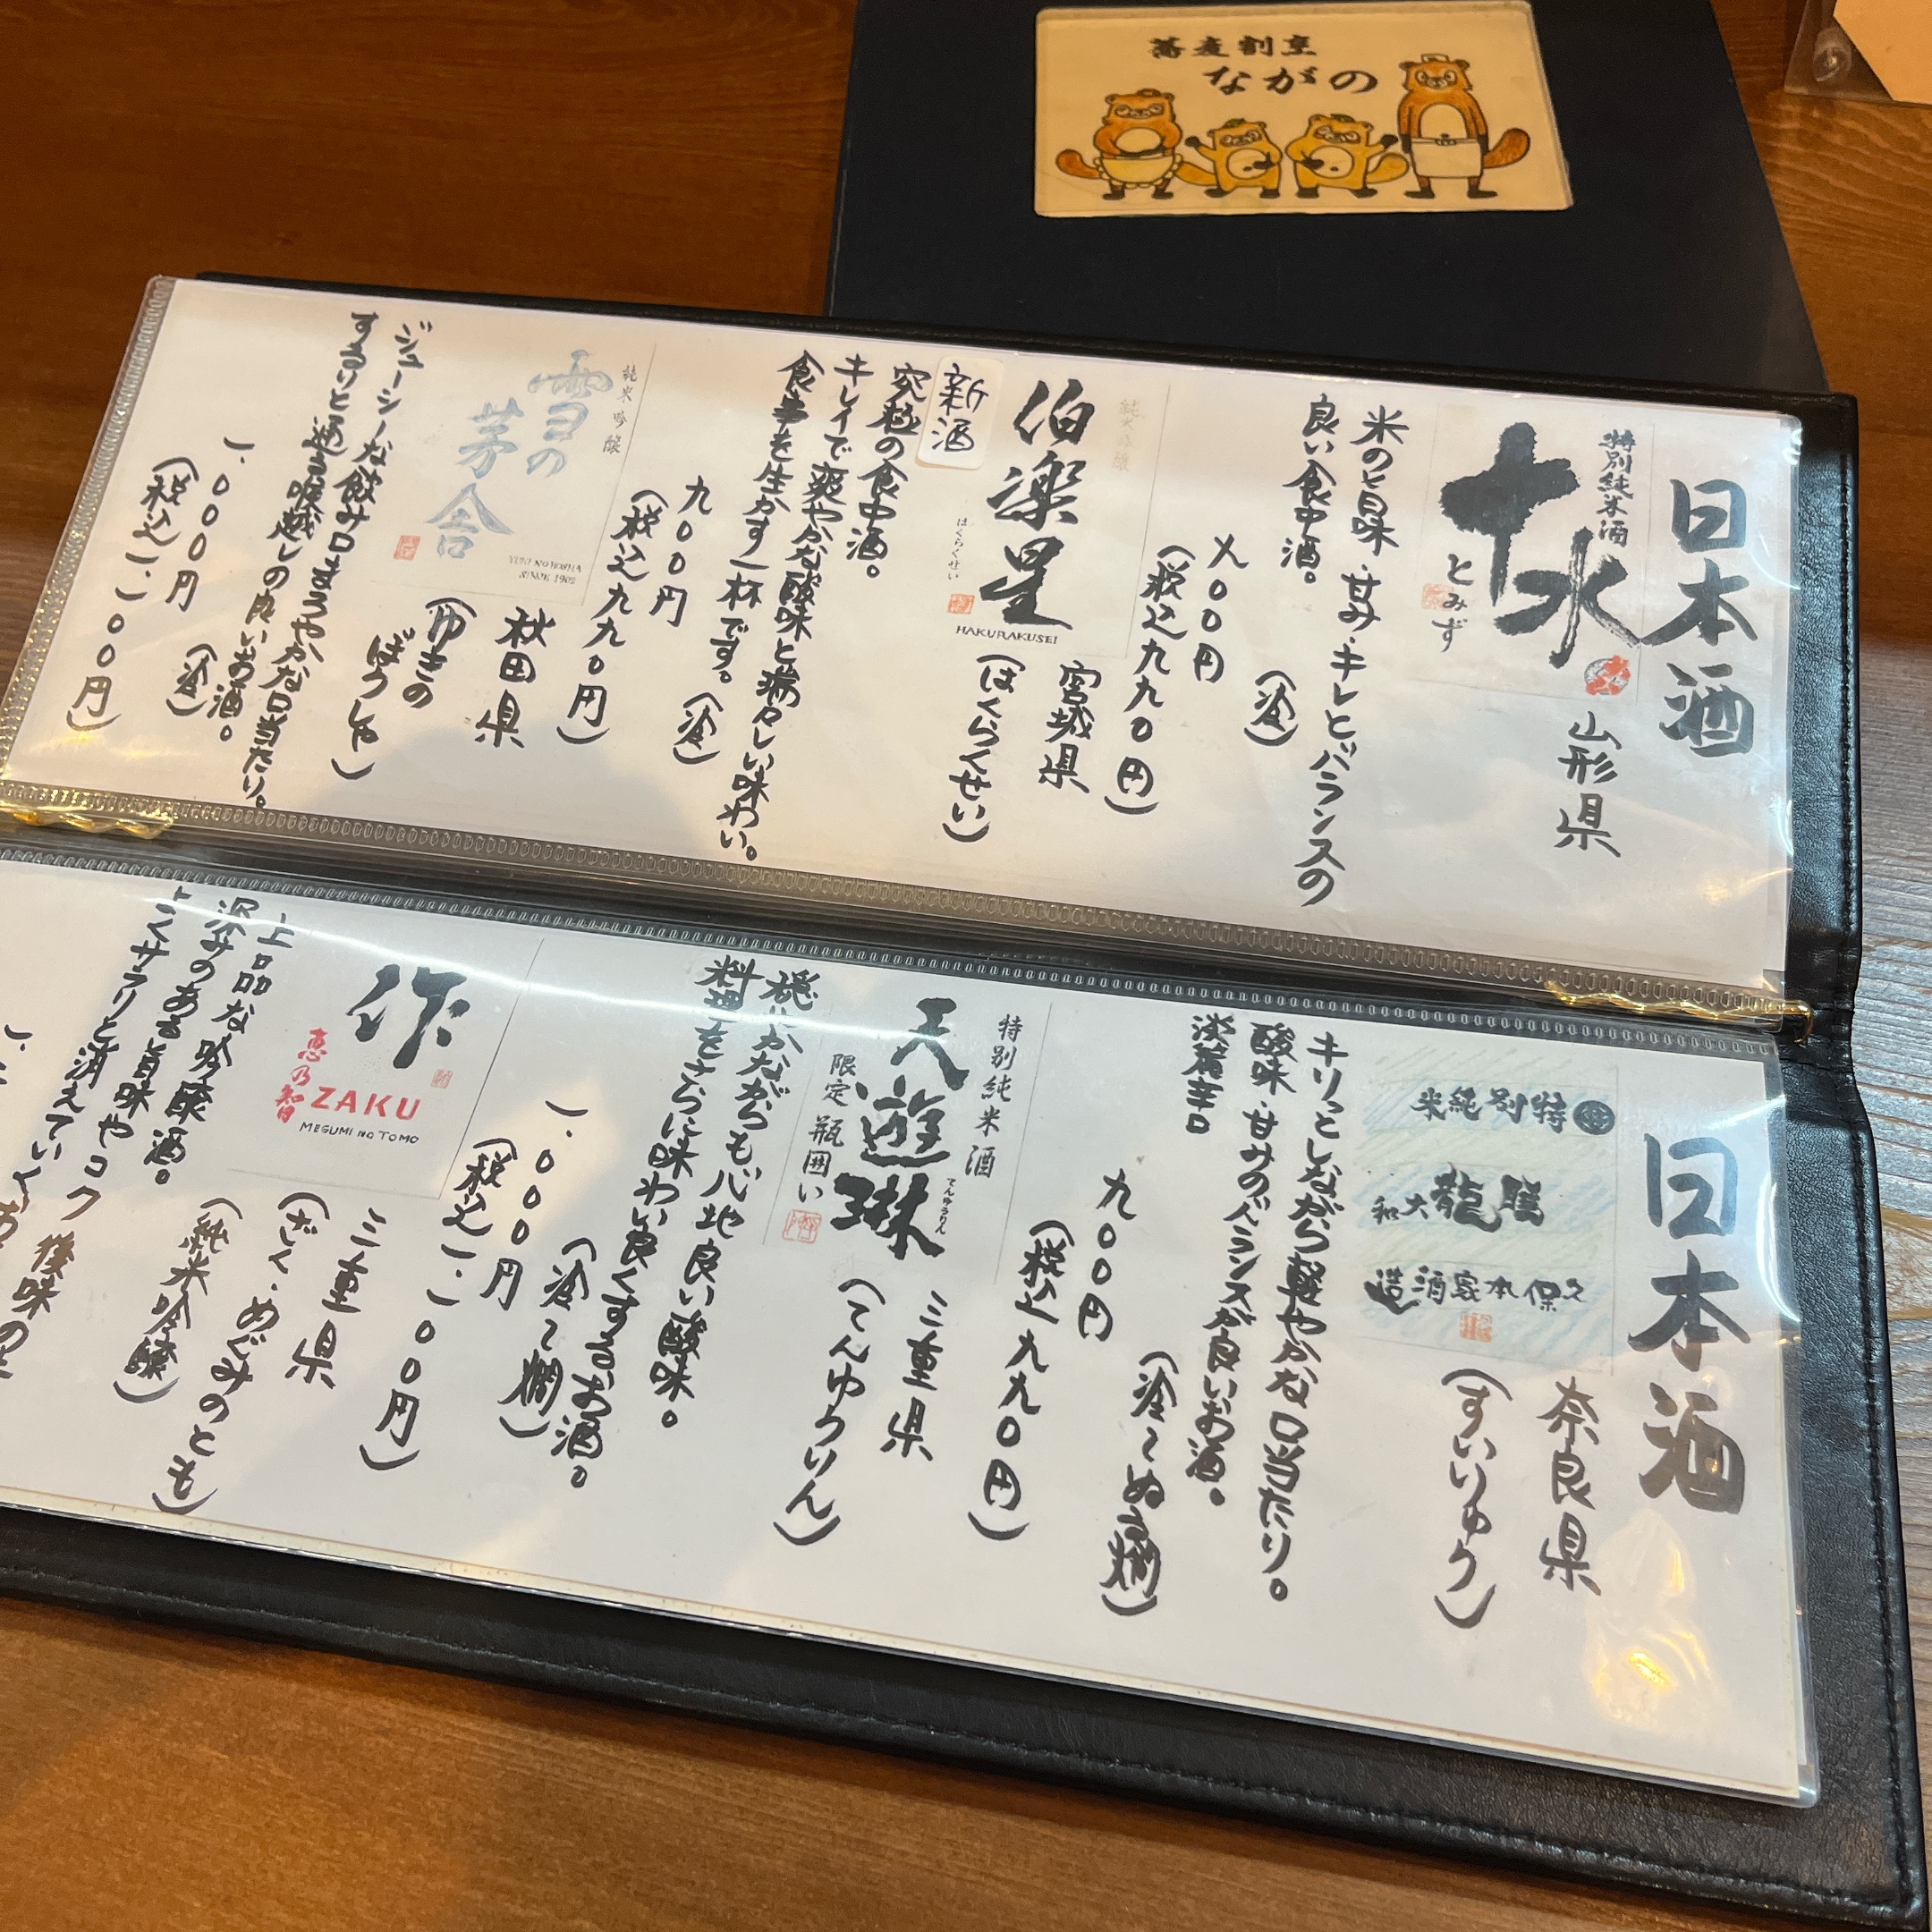 蕎麦割烹
ながの
日本酒
特別純米酒
十水
とみず
山形県
米のと旨味・甘み・キレとバランスの
良い食中酒。
(冷)
九〇〇円
(税込九九〇円)
純米吟醸
伯楽星
はくらくせい
HAKURAKUSEI
宮城県
(はくらくせい)
新酒
究極の食中酒。
キレイで爽やかな酸味と瑞々しい味わい。
食事を生かす一杯です。
(冷)
九〇〇円
(税込九九〇円)
純米吟醸
雪の
茅舎
YUKI NO BOSHA
SINCE 1902
秋田県
(ゆきの
ぼうしゃ)
ジューシーな飲み口まろやかな口当たり。
するりと通る喉越しの良いお酒。
(冷)
一、〇〇〇円
(税込一、一〇〇円)
日本酒
特別純米
睡龍
大和
久保本家酒造
奈良県
(すいりゅう)
キリっとしながら軽やかな口当たり。
酸味 甘みのバランスが良いお酒。
淡麗辛口
(冷〜ぬる燗)
九〇〇円
(税込九九〇円)
特別純米酒
天遊琳
てんゆうりん
限定 瓶囲い
三重県
(てんゆうりん)
穏やかながらも心地良い酸味。
料理をさらに味わい良くするお酒。
(冷〜燗)
一、〇〇〇円
(税込一、一〇〇円)
作
恵乃智
ZAKU
MEGUMI NO TOMO
三重県
(ざく・めぐみのとも)
(純米吟醸)
上品な吟醸酒。
深みのある旨味やコク 後味の
サラリと消えていく